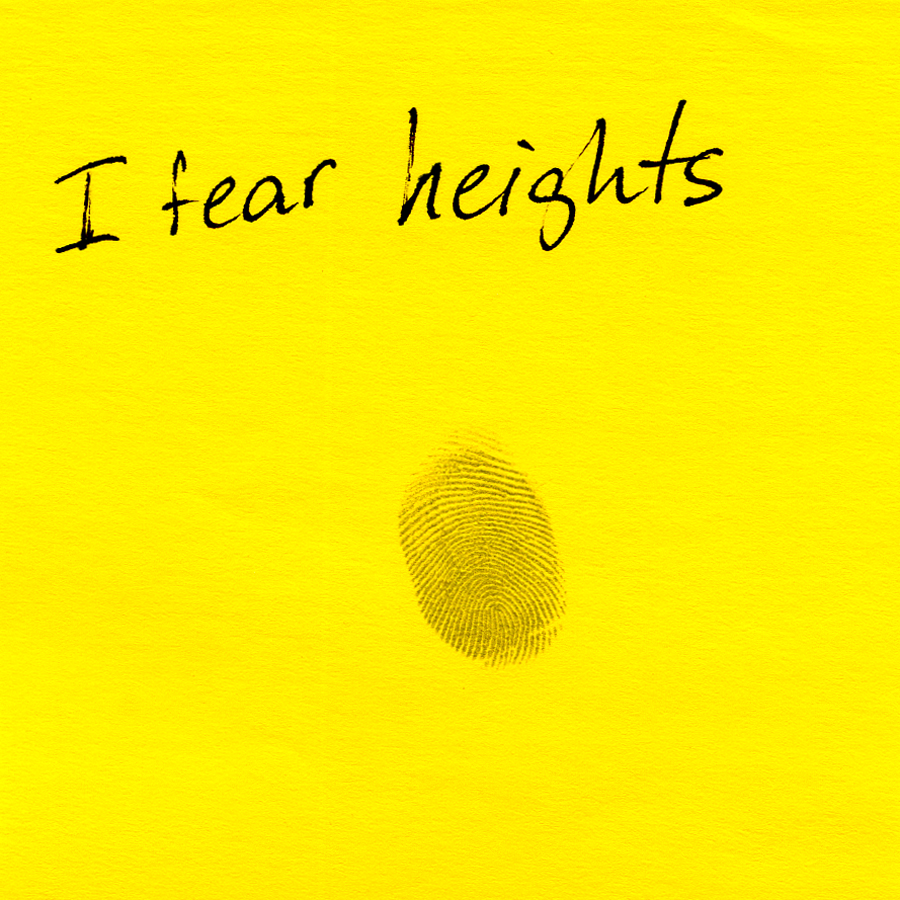 I fear heights